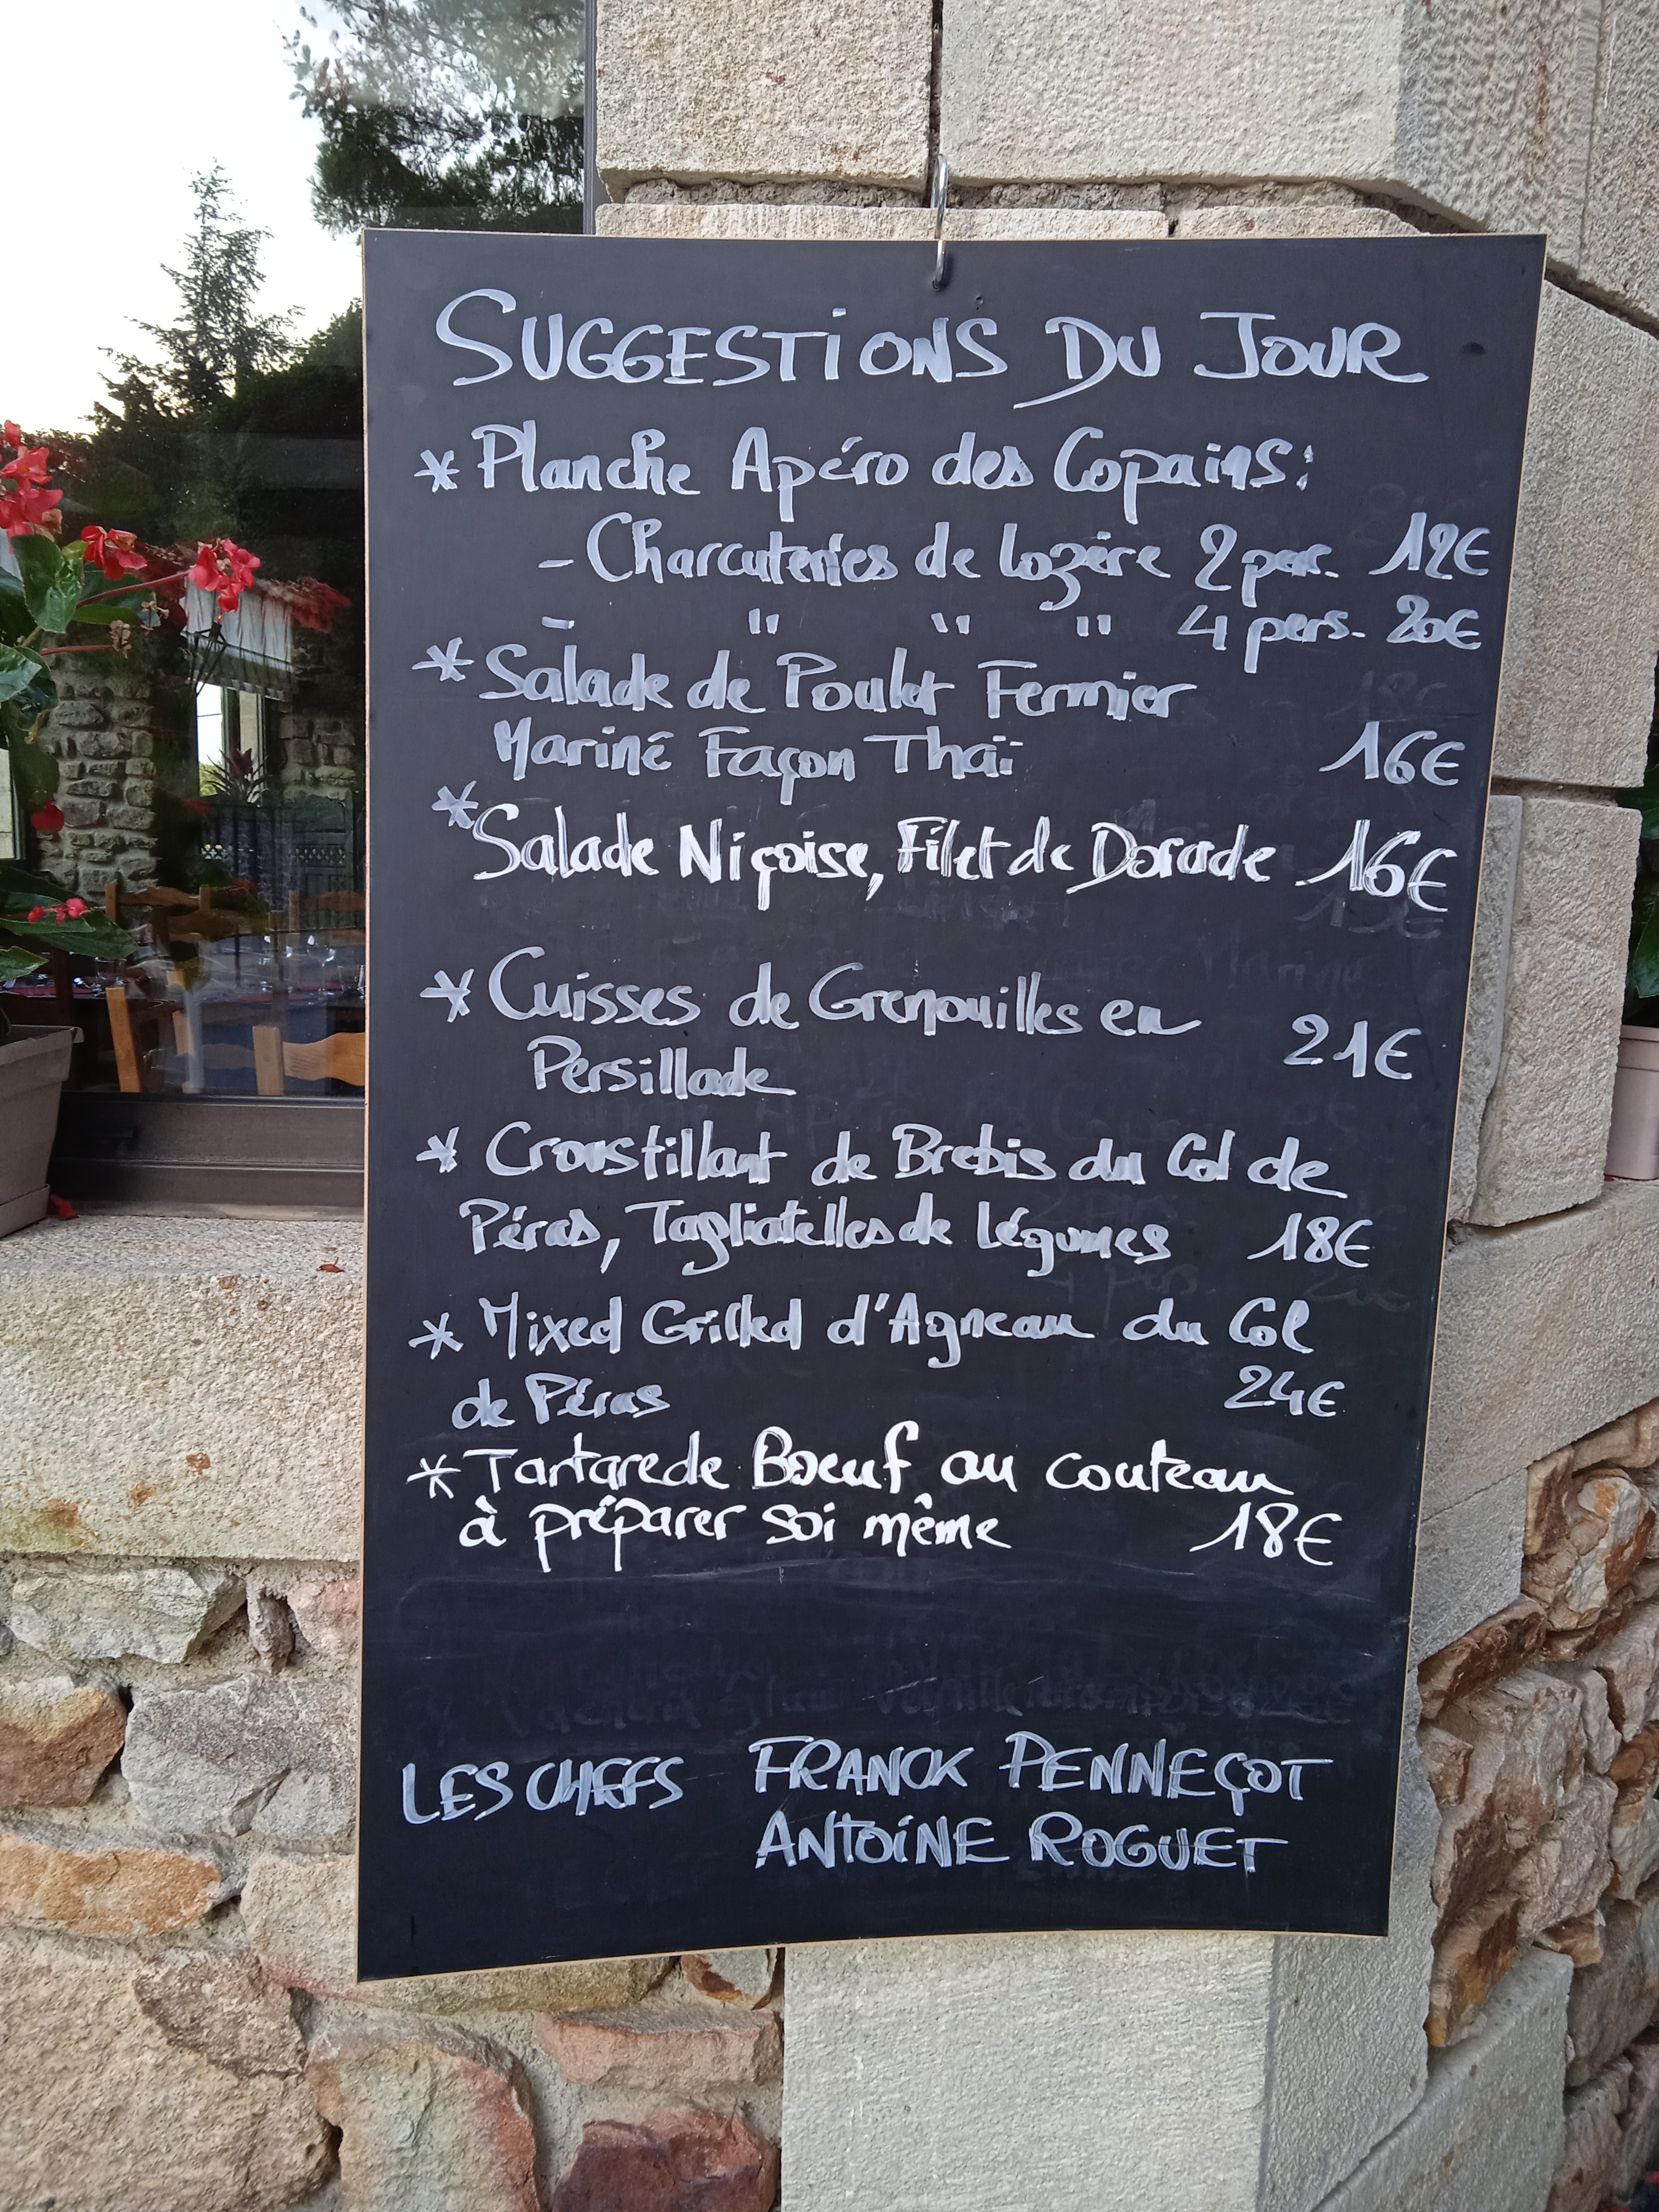 SUGGESTIONS DU JOUR
* Planche Apéro des Copains :
- Charcuteries de Lozère 2 pers. 12€
- " " " 4 pers. 20€
* Salade de Poulet Fermier
Mariné Façon Thaï 16€
* Salade Niçoise, Filet de Dorade 16€
* Cuisses de Grenouilles en
Persillade 21€
* Croustillant de Brebis du Col de
Péras, Tagliatelles de légumes 18€
* Mixed Grilled d'Agneau du Col
de Péras 24€
* Tartare de Boeuf au couteau
à préparer soi même 18€
LES CHEFS FRANCK PENNEÇOT
ANTOINE ROGUET